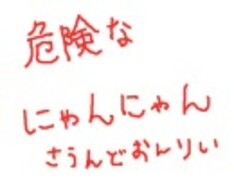 危険な
にゃんにゃん
さうんどおんりい